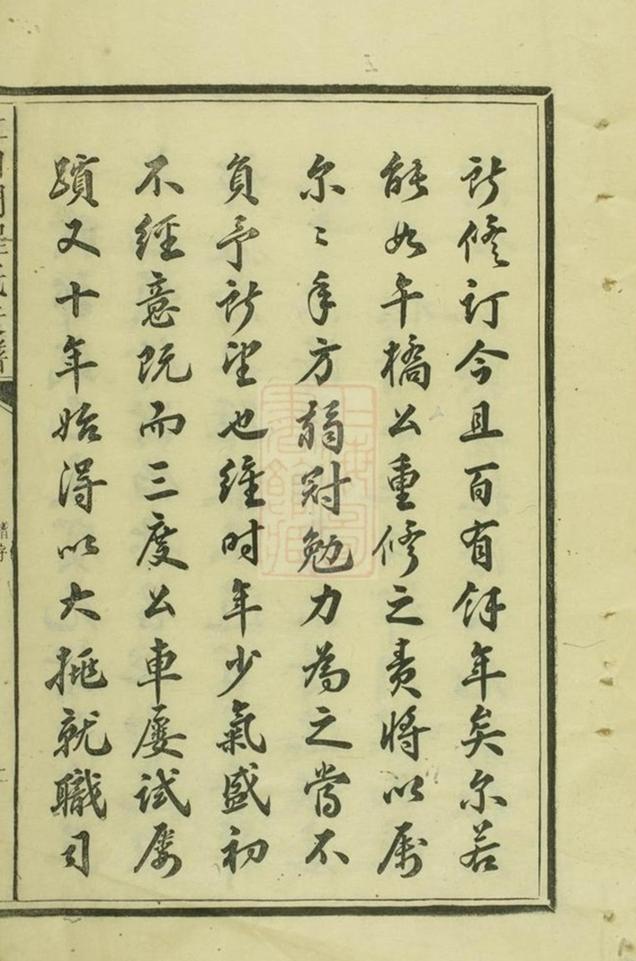 所修訂今且百有餘年矣尔若
能如午橋公重修之責將以屬
尔〻年方弱冠勉力為之當不
負予所望也維時年少氣盛初
不經意既而三度公車屢試屢
躓又十年始得以大挑就職司